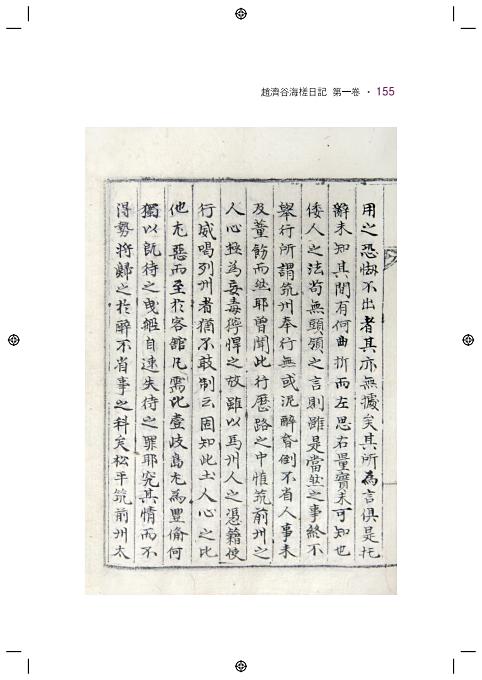 趙濟谷海槎日記 第一卷 · 155
用之恐惻不出者其亦無據矣其所為言俱是托
辭未知其間有何曲折而左思右量實未可知也
倭人之法苟無頭領之言則雖是當然之事終不
舉行所謂筑州奉行無或泥醉昏倒不省人事未
及董飭而然耶曾聞此行歷路之中惟筑前州之
人心極為妄毒獰悍之故雖以馬州人之憑藉使
行威喝列州者猶不敢制云固知此土人心之比
他尤惡而至於客館凡需比壹岐島尤為豐備何
獨以旣待之曳船自速失待之罪耶究其情而不
得勢將歸之於醉不省事之科矣松平筑前州太